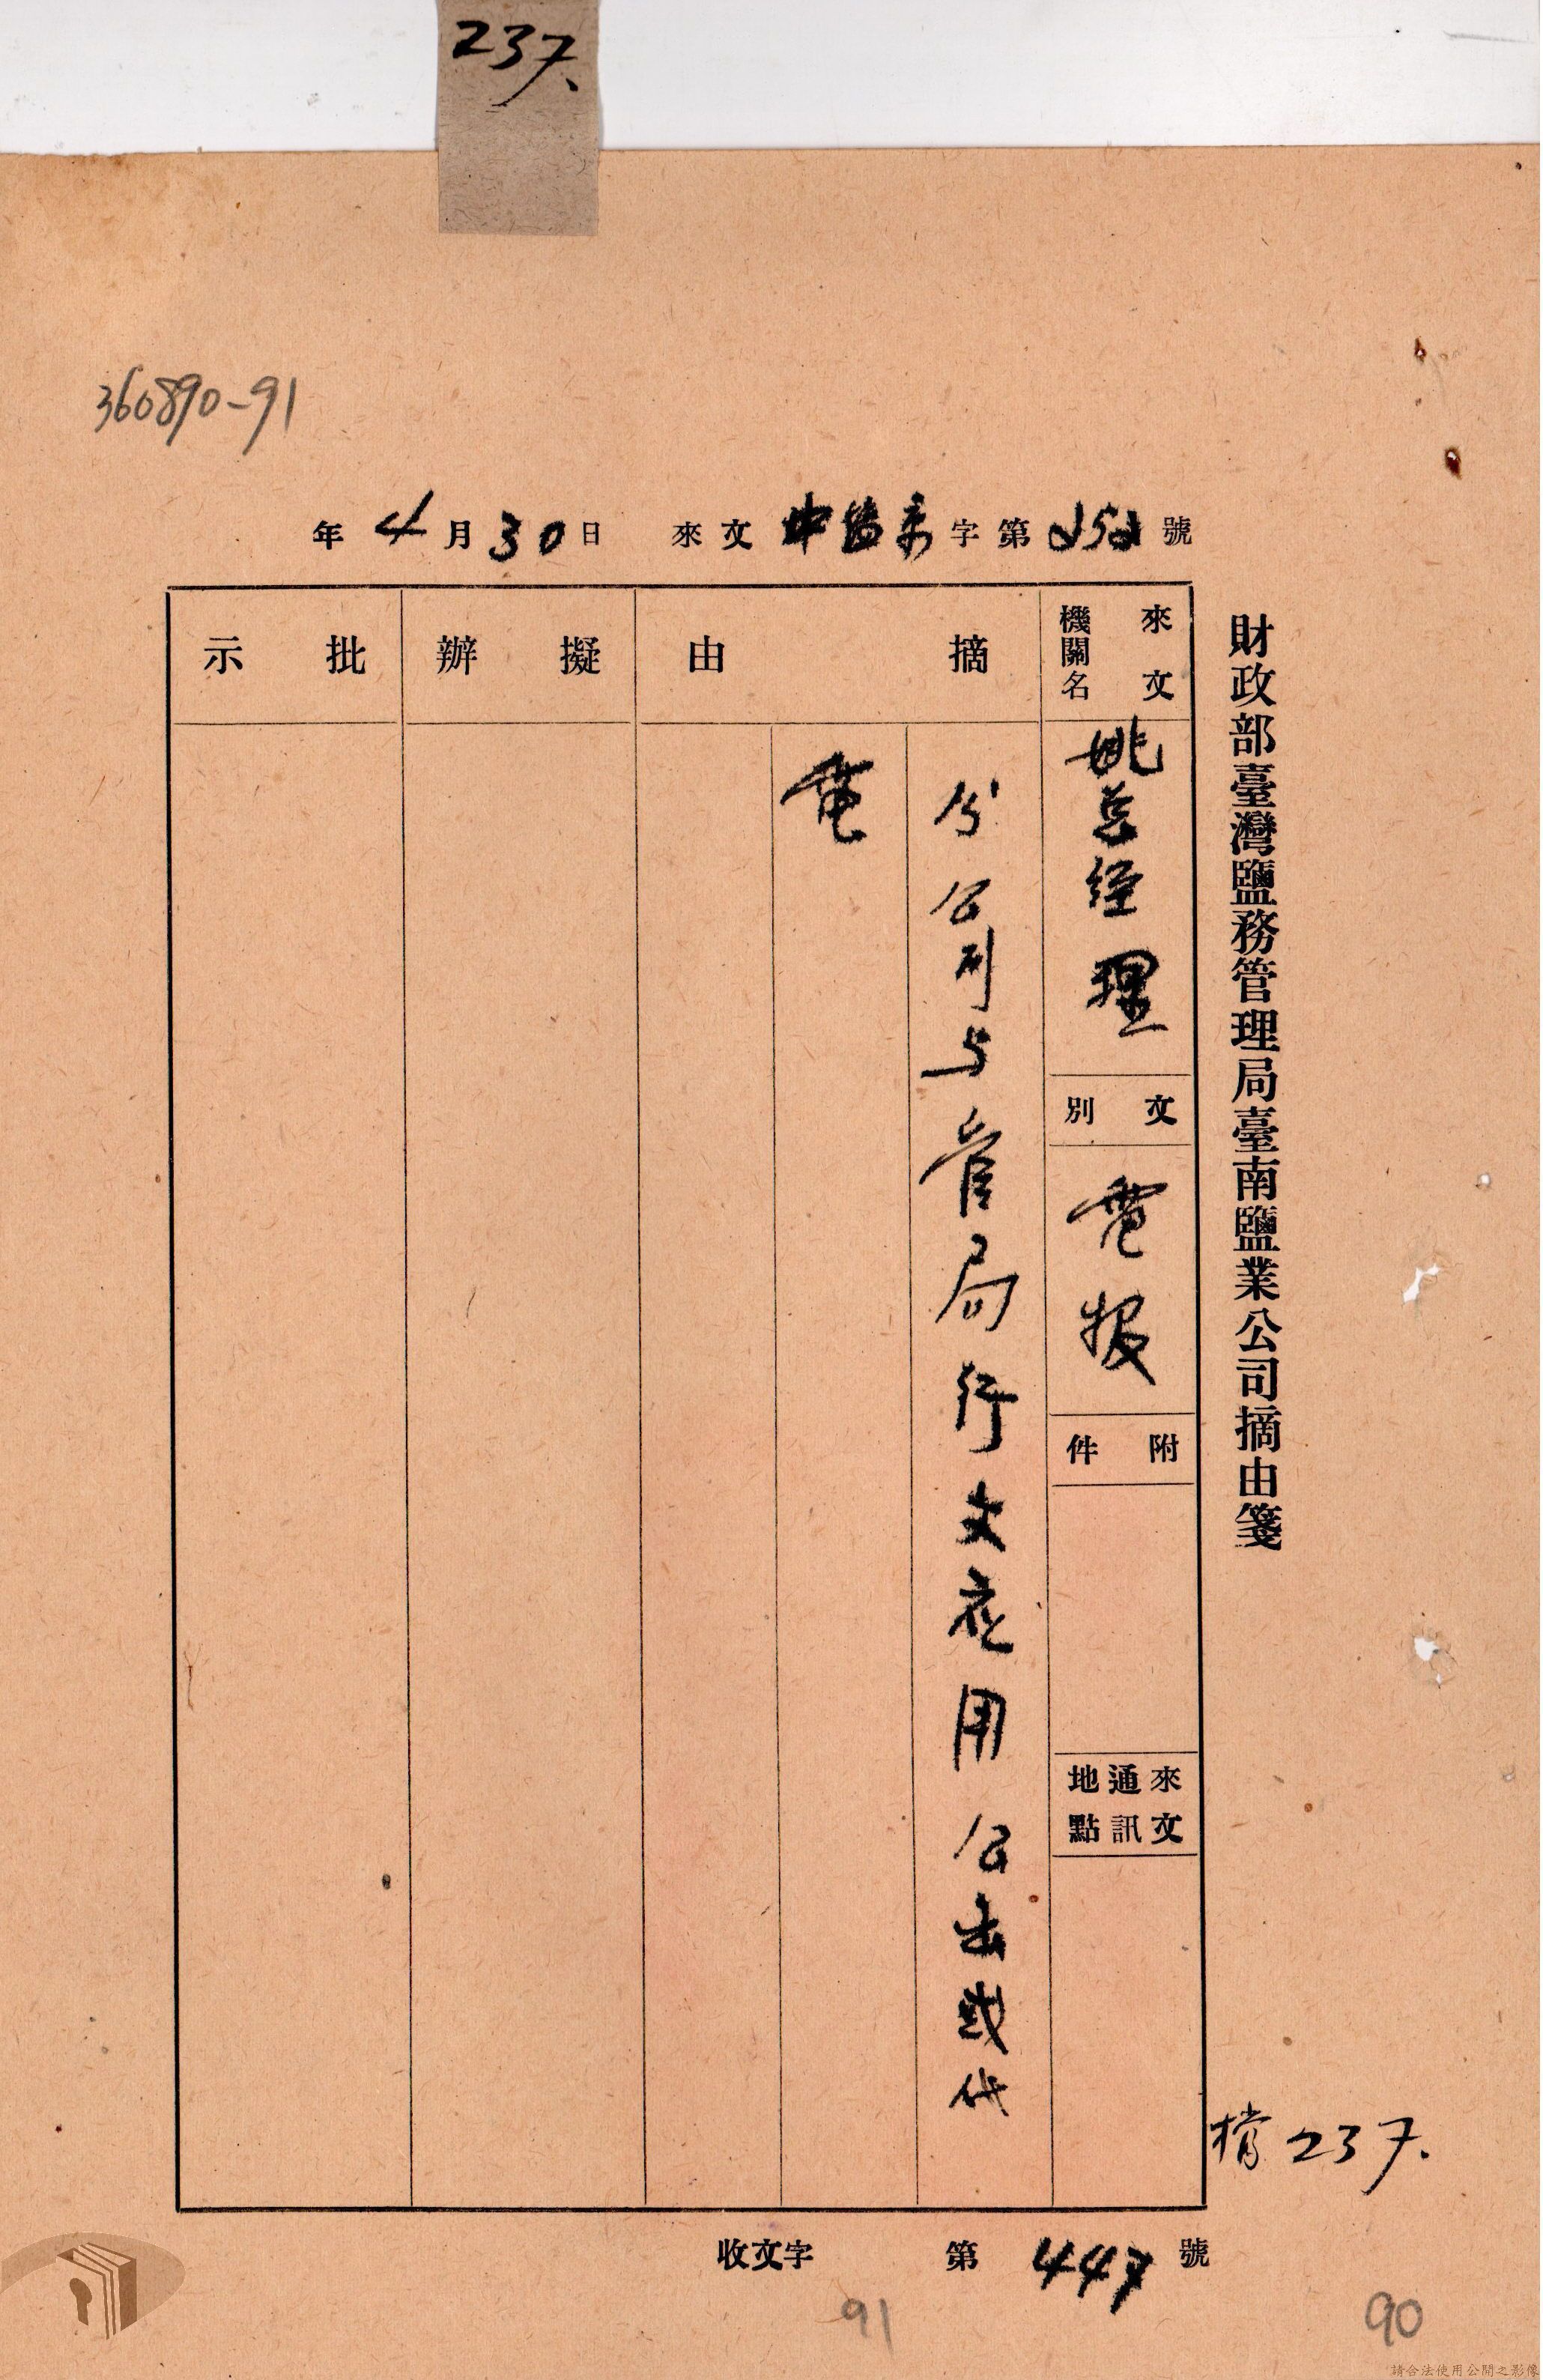 237.
360890-91
年 4 月 30 日 來文 中鹽京 字第 252 號
財政部臺灣鹽務管理局臺南鹽業公司摘由箋
來文機關名
姚总經理
文別
電报
附件
來文通訊地點
摘由
分公司与管局行文应用公函或代
電
擬辦
批示
档237.
收文字 第 447 號
91
90
請合法使用公開之影像